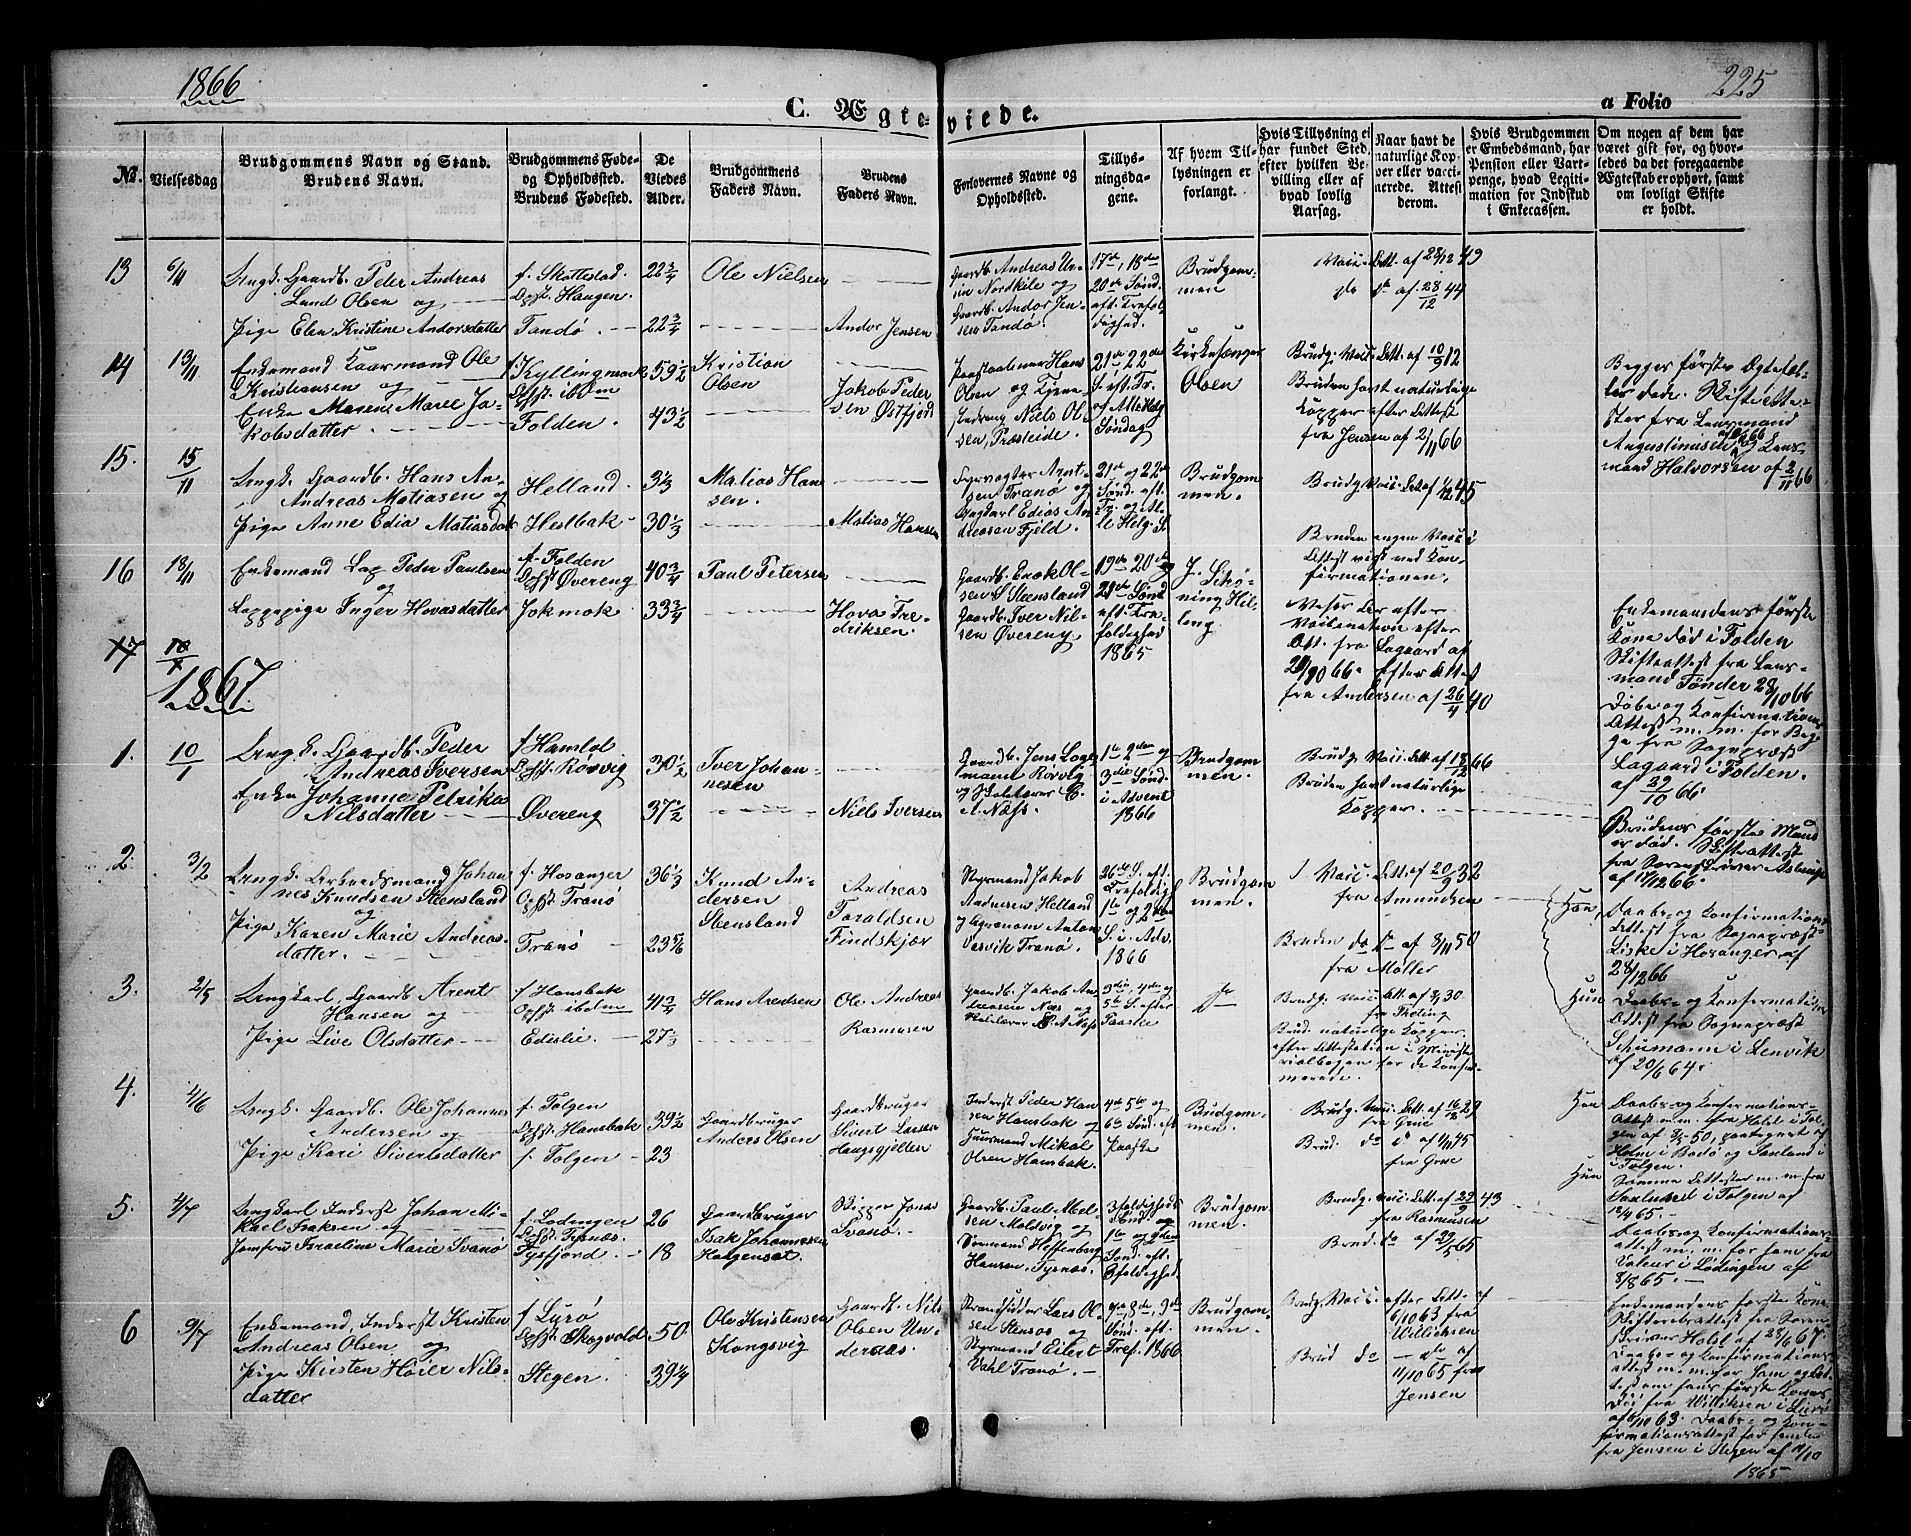 1866
225
C. Ægteviede.
a Folio
No.
Vielsesdag
Brudgommens Navn og Stand.
Brudens Navn.
Brudgommens Føde-
og Opholdssted.
Brudens Fødested.
De
Viedes
Alder.
Brudgommens
Faders Navn.
Brudens
Faders Navn.
Forlovernes Navne og
Opholdssted.
Tillys-
ningsda-
gene.
Af hvem Til-
lysningen er
forlangt.
Hvis Tillysning ei
har fundet Sted,
efter hvilken Be-
villing eller af
hvad lovlig
Aarsag.
Naar havt de
naturlige Kop-
per eller vacci-
nerede. Attest
derom.
Hvis Brudgommen
er Embedsmand, har
Pension eller Vart-
penge, hvad Legiti-
mation for Indskud
i Enkecassen.
Om nogen af dem har
været gift før, og hvor-
ledes da det foregaaende
Ægteskab er ophørt, samt
om lovligt Skifte
er holdt.
13 6/11
Ungk. Gaardb. Peder Andreas
Lund Olsen og
Pige Elen Kristine Andorsdatter
f. Skottestad
Opst. Haugen.
Tandø.
22 3/4
22 3/4
Ole Nielsen
Andor Jensen
Nordkile og
Gaardb. Andor Jen-
sen Tandø.
17de, 18de
20de Sønd.
eft. Trefol-
dighed.
Brudgom-
men
Vacc. Att. af 28/12 49
do do af 28/12 44
14 13/11
Enkemand Kaarmand Ole
Kristiansen og
Enke Maren Marie Ja-
kobsdatter.
f. Kyllingmark
Opst. ibdm
Folden.
59 1/2
43 1/2
Kristian
Olsen
Jakob Peder
sen Østfjord
Hans
Olsen og
Niels Ol-
sen, Presteide.
21de 22de
S. eft. Tr.
og AlleHelg.
Søndag
Kirkesanger
Olsen
Brudg. Vacc. Att. af 10/9 12
Bruden havt naturlige
Kopper efter Attest
fra Jensen af 2/11 66
Begges første Ægtefel-
ler døde. Skifteatte-
ster fra Lensmand
Augustinusen og Lens-
mand Halvorsen af 2/11 66
15. 15/11
Ungk. Gaardb. Hans An-
Andreas Matiasen og
Pige Anne Edia Matiasdatt
Helland
Hestbak
30 1/3
Matias Han
sen.
Matias Hansen
Fyrvogter Arnt-
sen Tranø og
Ungkarl Edias An-
dreasen Fjeld.
21de og 22de
Sønd. eft.
Tr. og Al-
le Helg. S.
Brudgom
men.
Brudg. Vacc. Att. af 1/12 45
Bruden ingen Vacc.
Attest vist ved Kon-
firmationen.
16 18/11
Enkemand Lap Peder Paulsen
og
Lappepige Inger Hovasdatter
f. Folden
Opst Øvereng
Jokmok
40 3/4
33 3/4
Paul Petersen
Hova Fre-
driksen.
Gaardb. Enok Ol-
sen S. Steensland
Gaardb. Iver Nil-
sen Øvereng
19de 20de og
21de Sønd
eft. Tre-
foldighed
1865
J. Schø-
ning Hil-
ling
efter
efter
Att. fra Lagaard af
29/10 66. Efter Attest
fra Andersen af 26/4 40
Enkemandens første
Kone død i Folden
Skifteattest fra Lens-
mand Tønder 28/10 66
Døbe og Konfirmations
Attest m. m. for Beg-
ge fra Sognepræst
Lagaard i Folden.
af 29/10 66.
17 10/1
1867.
1. 10/1
Ungk. Gaardb. Peder
Andreas Iversen
Enke Johanne Petrika
Nilsdatter
f Hamlot
Opst. Rørvig
Øvereng
30 1/2
37 1/2
Iver Johan-
nesen
Niels Iversen
Gaardb. Jens Lag-
mann Rørvig
og Skolelærer E.
A. Næss.
1ste 2den og
3die Sønd.
i Advent
1866
Brudgom
men.
Brudg. Vacc. Att. af 18/12 66
Bruden havt naturlige
Kopper.
Brudens første Mand
er død. Skifteattest
fra Sorenskriver
af 17/12 66.
2. 3/2
Ungk. Arbeidsmand Johan
nes Knudsen Stensland
og
Pige Karen Marie Andreas-
datter.
f. Hosanger
Opst Tranø
Tranø
36 1/3
23 5/6
Knud An-
dersen
Steensland
Andreas
Taraldsen
Findskjær
Styrmand Jakob
Andresen Helland
og Agronom Anton
Vasvik Tranø.
26de S. eft.
Trefoldigh
1ste og 2den
S. i. Adv.
1866
Brudgom
men.
Vacc. Att. af 20/9 32
fra Amundsen
Bruden do do af 8/11 50
fra Møller
Han,
Daabs- og Konfirmations
Attest fra Sognepræst
Liske i Hosanger af
24/12 66
3. 2/5
Ungkarl, Gaardb. Arent
Hansen og
Pige Live Olsdatter
f Hansbak
Opst ibdm
Edislie.
41 3/4
27 1/3
Hans Arentsen
Ole Andreas
Rasmusen
Gaardb. Jakob An-
dreasen Næs og
Skolelærer E. A. Næss
3die, 4de og
5te S. efter
Paaske
Brudg. Vacc. Att. af 8/1 30
fra Tholing
Brud. naturlige Kopper
efter Attestation i Ministe
rialbogen for de Konfir-
merede.
Hun
Daabs- og Konfirmations
Attest fra Sognepræst
Schumann i Lenvik
af 20/6 64.
4. 4/6
Ungk. Gaardb. Ole Johannes
Andersen og
Pige Kari Sivertsdatter
f. Tolgen
Opst. Hansbak
f. Tolgen
39 1/2
23
Gaardbruger
Anders Olsen
Gaardbruger
Sivert Larsen
Haugsgjelten
Inderst Peder Han
sen Hansbak og
Huusmand Mikal
Olsen Hansbak.
4de 5te og
6te Sønd. eft
Paaske
Brudgom-
men.
Brudg. Vacc. Att. af 16/8 29
fra Grue
Brud. do do af 4/11 45
fra Grue
Han
Daabs- og Konfirmations-
Attest m. m. fra Hold i Tol-
gen af 9/5 50, paategnet af
Holm i Bodø og Sanland i
i Tolgen.
Hun
Samme Attester m. m. fra
Sanland i Tolgen af
12/4 65.
5. 4/7
Ungkarl Inderst Johan Mi-
kael Isaksen og
Jomfru Israeline Marie Svanø
f Lødingen
Opst. Tysnæs.
Tysfjord
26
18
Gaardbruger
Isak Johannesen
Helgenset.
Bygger Jonas
Svanø.
Gaardb. Paul Mel-
sen Molvig og
Styrmand Heffenberg
Hansen, Tysnæs.
3foldigheds
Sønd og
1ste og 2den
Sønd. eft.
3foldighed.
Brudgom
men.
Brudg. Vacc. Att. af 29/9 43
fra Rasmusen
Brud. do af 29/5 65
Daabs- og Konfirmations-
attest m. m. for ham fra
Valeur i Lødingen af
8/1 65.
6 9/7
Enkemand, Inderst Kristen
Andreas Olsen og
Pige Kirsten Høier Nils-
datter
f Lurø
Opst. Skogvold
Stegen.
50
39 1/4
Ole Kristensen
Kongsvig
Gaardb. Nils
Olsen Un-
deraas.
Strandsidder Lars Ol-
sen Stensos og
Styrmand Eilert
Dahl Tranø.
7de, 8de, 9de
Sønd. eft.
Tref. 1866
Brudgom-
men.
Brudg. Vacc. efter Att. af
6/10 63 fra
Willicksen
Brud do do af
11/10 65 fra
Jensen
Enkemandens første Kone
Skifteattest fra Soren-
skriver Holst af 28/6 67.
Daabs- og Konfirmations-
attest m. m. for ham og Att-
est om hans første Kones
Død fra Willicksen i Lurø
af 6/10 63. Daabs- og Kon-
firmationsattest for hende
fra Jensen i Stegen af 11/10
1865